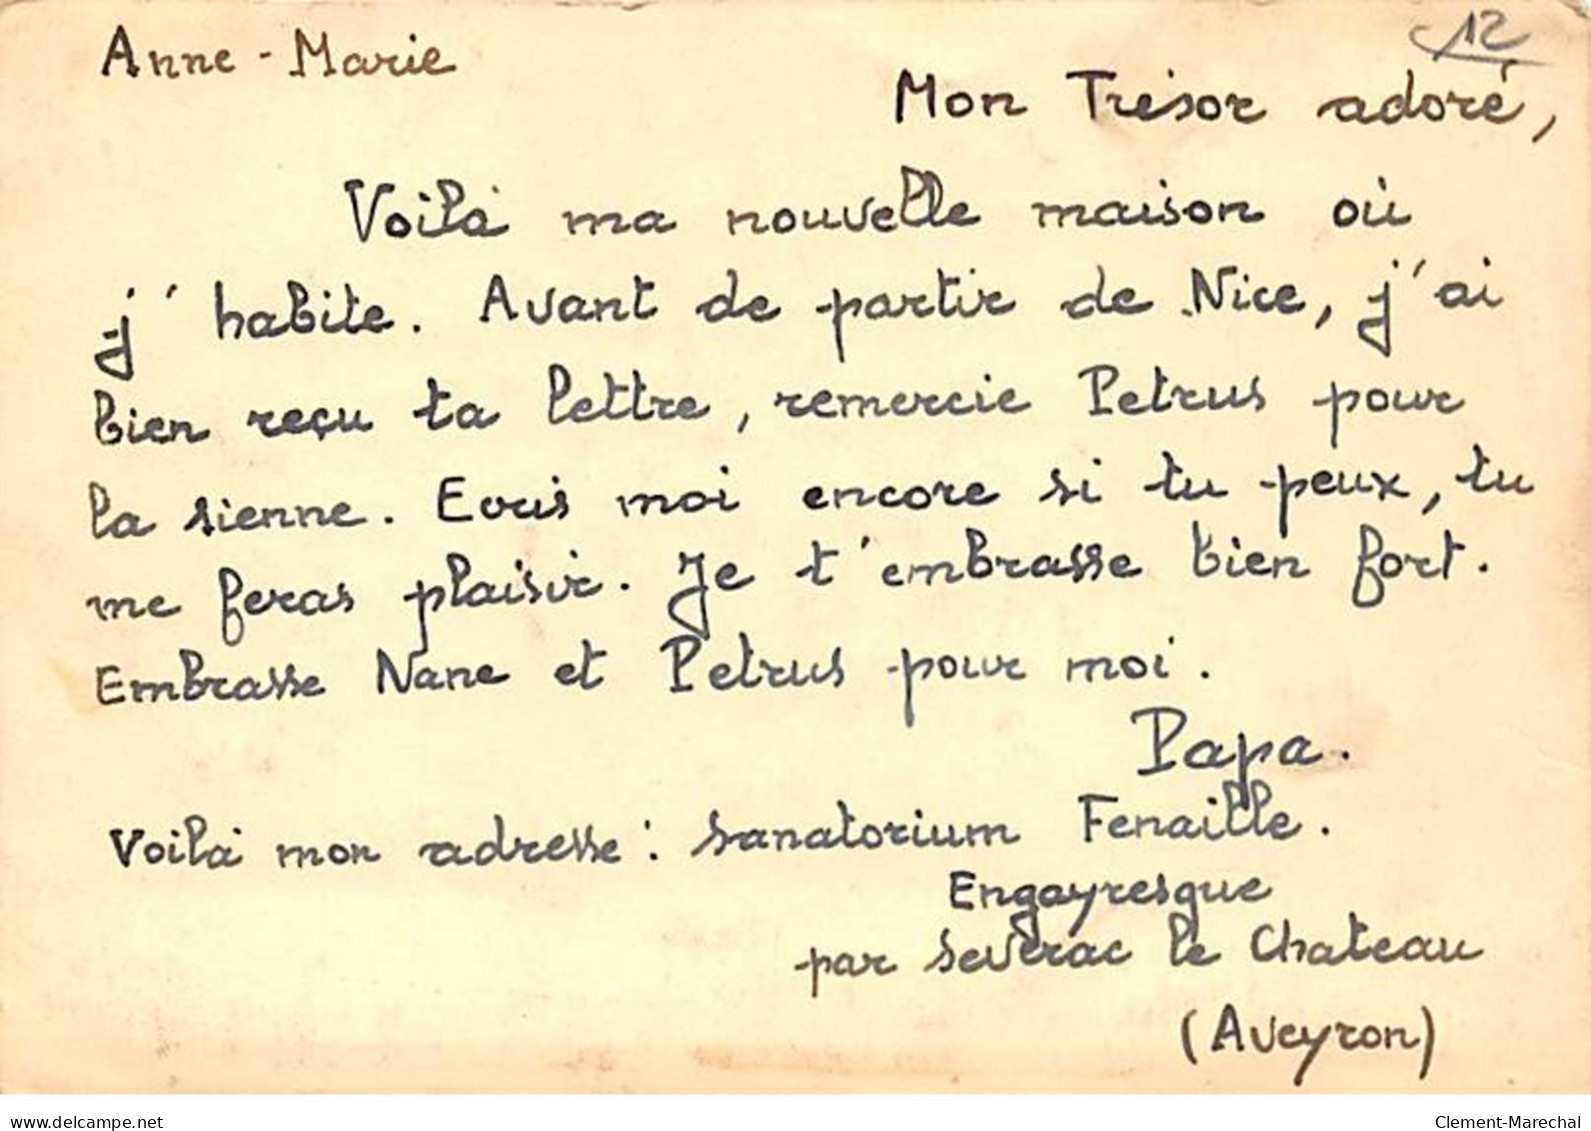 12
Anne-Marie
Mon Trésor adoré,
Voilà ma nouvelle maison où
j'habite. Avant de partir de Nice, j'ai
bien reçu ta lettre, remercie Petrus pour
la sienne. Ecris moi encore si tu peux, tu
me feras plaisir. Je t'embrasse bien fort.
Embrasse Nane et Petrus pour moi.
Papa.
Voilà mon adresse : Sanatorium Fenaille.
Engayresque
par Severac le Chateau
(Aveyron)
www.delcampe.net
Clement-Marechal